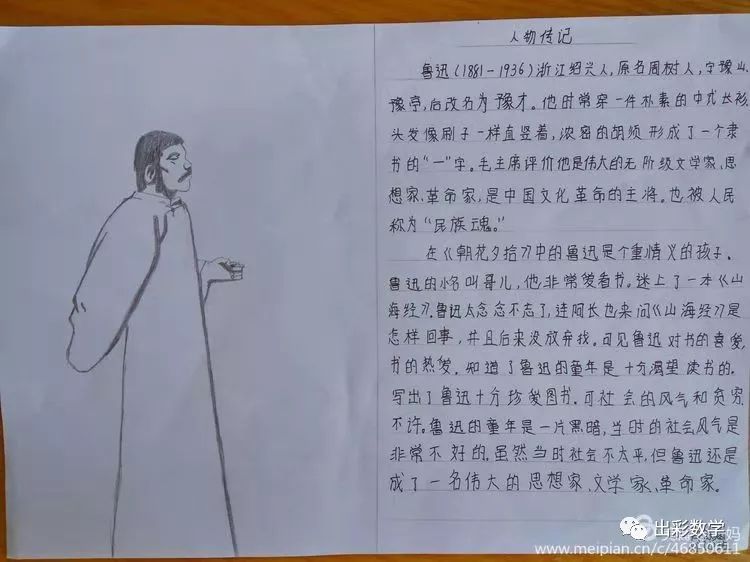 人物传记
鲁迅(1881-1936)浙江绍兴人,原名周树人,字豫山、
豫亭,后改名为豫才。他时常穿一件朴素的中式长衫,
头发像刷子一样直竖着,浓密的胡须形成了一个隶
书的“一”字。毛主席评价他是伟大的无阶级文学家、思
想家、革命家,是中国文化革命的主将。也被人民
称为“民族魂。”
在《朝花夕拾》中的鲁迅是个重情义的孩子。
鲁迅的小名叫哥儿,他非常爱看书。迷上了一本《山
海经》。鲁迅太念念不忘了,连阿长也来问《山海经》是
怎样回事,并且后来没放弃找。可见鲁迅对书的喜爱,
书的热爱。知道了鲁迅的童年是十分渴望读书的。
写出了鲁迅十分珍爱图书。可社会的风气和贫穷
不许。鲁迅的童年是一片黑暗,当时的社会风气是
非常不好的。虽然当时社会不太平,但鲁迅还是
成了一名伟大的思想家、文学家、革命家。
出彩数学
www.meipian.cn/c/46850611